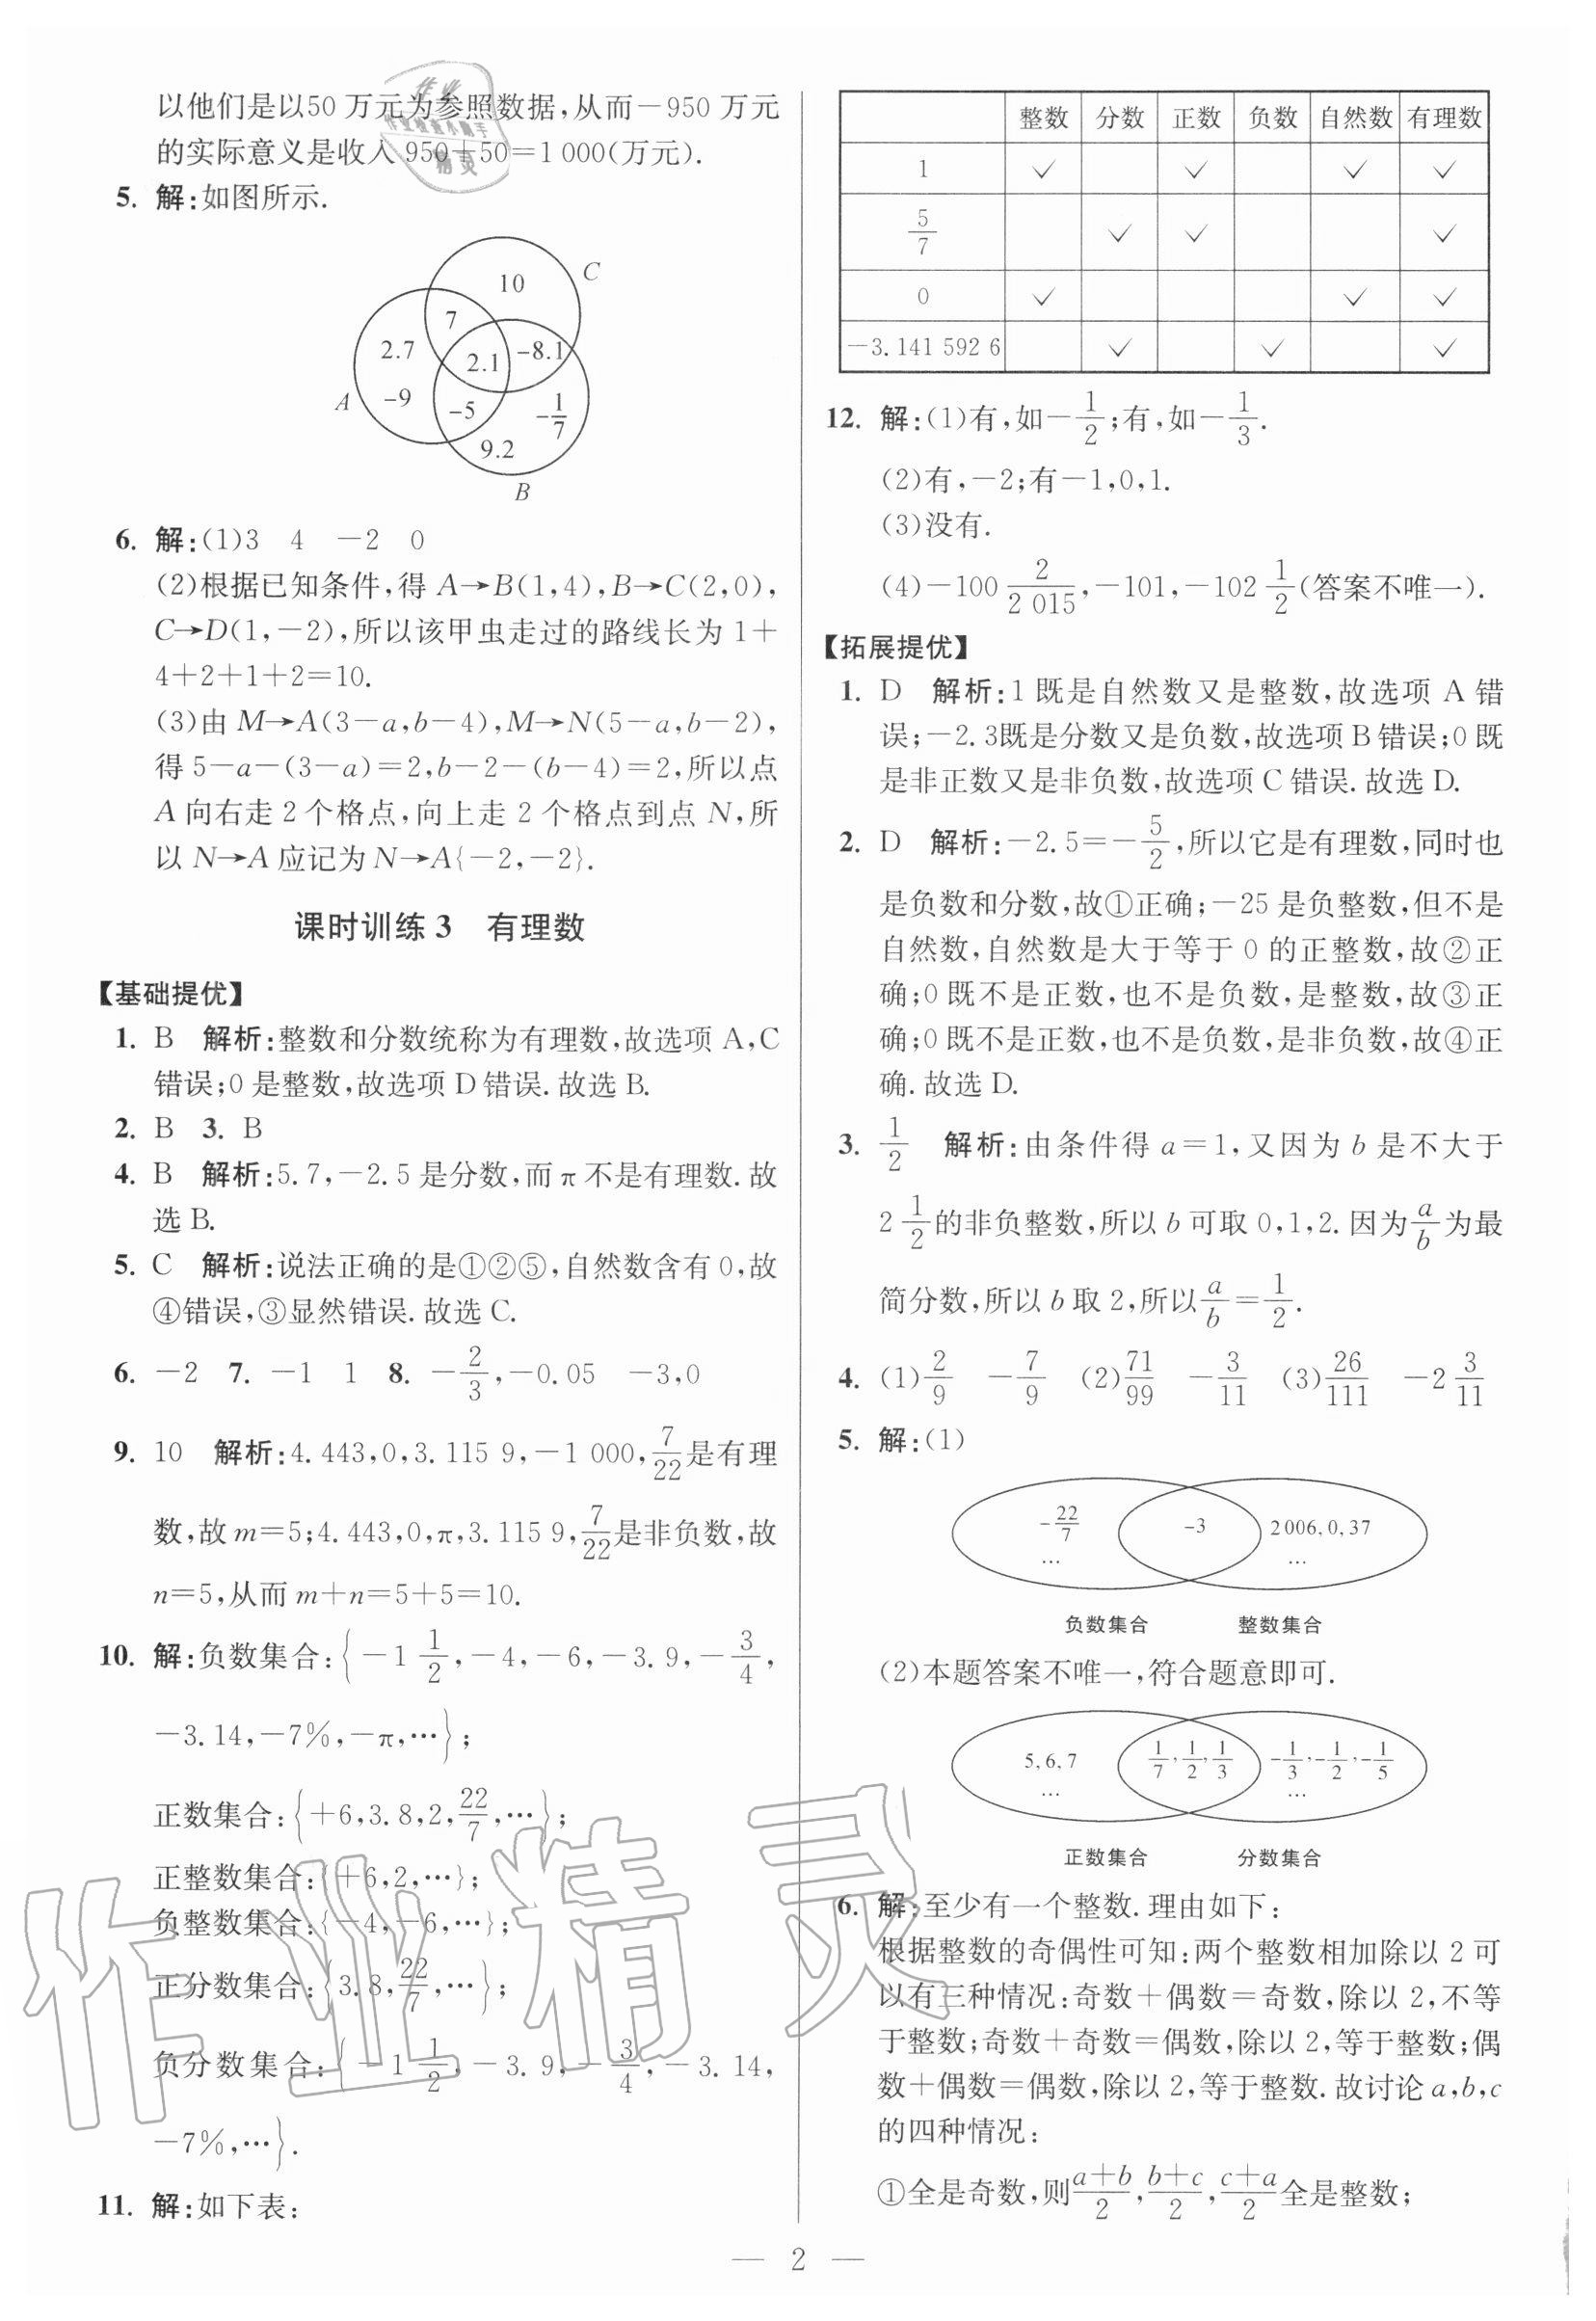 以他们是以50万元为参照数据,从而－950万元
的实际意义是收入950＋50＝1 000(万元).
5. 解:如图所示.
10
C
7
2.7
2.1
-8.1
A
-9
-5
-1/7
9.2
B
6. 解:(1)3 4 －2 0
(2)根据已知条件,得 A→B(1,4),B→C(2,0),
C→D(1,－2),所以该甲虫走过的路线长为 1＋
4＋2＋1＋2＝10.
(3)由 M→A(3－a,b－4),M→N(5－a,b－2),
得 5－a－(3－a)＝2,b－2－(b－4)＝2,所以点
A 向右走 2 个格点,向上走 2 个格点到点 N,所
以 N→A 应记为 N→A{－2,－2}.
课时训练 3 有理数
【基础提优】
1. B 解析:整数和分数统称为有理数,故选项 A,C
错误;0 是整数,故选项 D 错误. 故选 B.
2. B 3. B
4. B 解析:5.7,－2.5 是分数,而 π 不是有理数. 故
选 B.
5. C 解析:说法正确的是①②⑤,自然数含有 0,故
④错误,③显然错误. 故选 C.
6. －2 7. －1 1 8. －2/3,－0.05 －3,0
9. 10 解析:4.443,0,3.115 9,－1 000,7/22是有理
数,故 m＝5;4.443,0,π,3.115 9,7/22是非负数,故
n＝5,从而 m＋n＝5＋5＝10.
10. 解:负数集合:{－1 1/2,－4,－6,－3.9,－3/4,
－3.14,－7%,－π,…};
正数集合:{＋6,3.8,2,22/7,…};
正整数集合:{＋6,2,…};
负整数集合:{－4,－6,…};
正分数集合:{3.8,22/7,…};
负分数集合:{－1 1/2,－3.9,－3/4,－3.14,
－7%,…}.
11. 解:如下表:
整数 分数 正数 负数 自然数 有理数
1 ✓ ✓ ✓ ✓
5/7 ✓ ✓ ✓
0 ✓ ✓ ✓
－3.141 592 6 ✓ ✓ ✓
12. 解:(1)有,如－1/2;有,如－1/3.
(2)有,－2;有－1,0,1.
(3)没有.
(4)－100 2/2 015,－101,－102 1/2(答案不唯一).
【拓展提优】
1. D 解析:1 既是自然数又是整数,故选项 A 错
误;－2.3既是分数又是负数,故选项 B 错误;0 既
是非正数又是非负数,故选项 C 错误. 故选 D.
2. D 解析:－2.5＝－5/2,所以它是有理数,同时也
是负数和分数,故①正确;－25 是负整数,但不是
自然数,自然数是大于等于 0 的正整数,故②正
确;0 既不是正数,也不是负数,是整数,故③正
确;0 既不是正数,也不是负数,是非负数,故④正
确. 故选 D.
3. 1/2 解析:由条件得 a＝1,又因为 b 是不大于
2 1/2的非负整数,所以 b 可取 0,1,2. 因为a/b为最
简分数,所以 b 取 2,所以a/b＝1/2.
4. (1)2/9 －7/9 (2)71/99 －3/11 (3)26/111 －2 3/11
5. 解:(1)
-22/7 -3 2 006,0,37
… …
负数集合 整数集合
(2)本题答案不唯一,符合题意即可.
5,6,7 1/7,1/2,1/3 -1/3,-1/2,-1/5
… …
正数集合 分数集合
6. 解:至少有一个整数. 理由如下:
根据整数的奇偶性可知:两个整数相加除以 2 可
以有三种情况:奇数＋偶数＝奇数,除以 2,不等
于整数;奇数＋奇数＝偶数,除以 2,等于整数;偶
数＋偶数＝偶数,除以 2,等于整数. 故讨论 a,b,c
的四种情况:
①全是奇数,则a＋b/2,b＋c/2,c＋a/2全是整数;
— 2 —
作业精灵